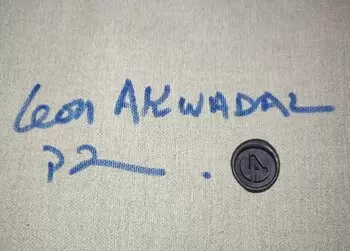 Leon AKWADAR
P2